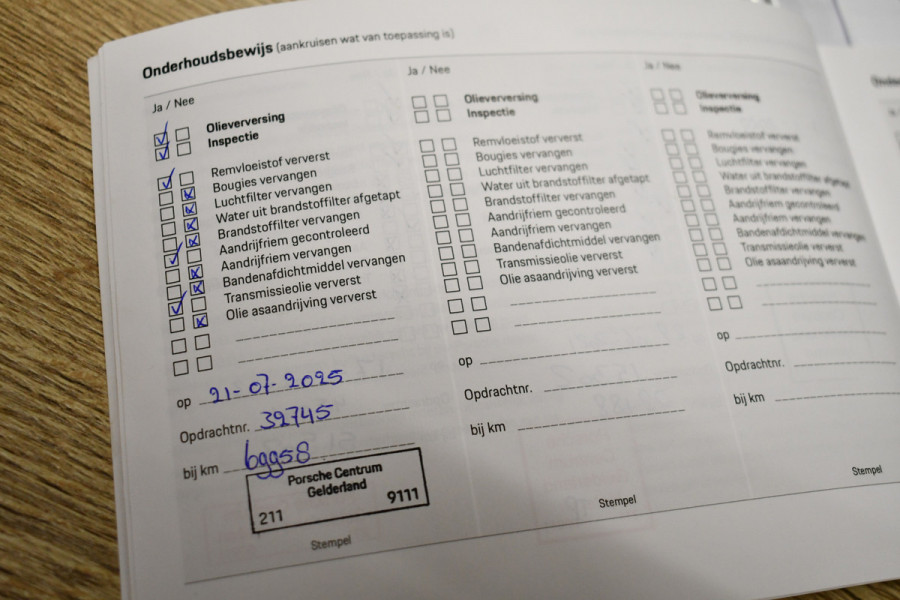 Onderhoudsbewijs (aankruisen wat van toepassing is)
Ja / Nee
Olieverversing
Inspectie
Remvloeistof ververst
Bougies vervangen
Luchtfilter vervangen
Water uit brandstoffilter afgetapt
Brandstoffilter vervangen
Aandrijfriem gecontroleerd
Aandrijfriem vervangen
Bandenafdichtmiddel vervangen
Transmissieolie ververst
Olie asaandrijving ververst
op 21-07-2025
Opdrachtnr. 32745
bij km 69958
Porsche Centrum
Gelderland
211 9111
Stempel
Ja / Nee
Olieverversing
Inspectie
Remvloeistof ververst
Bougies vervangen
Luchtfilter vervangen
Water uit brandstoffilter afgetapt
Brandstoffilter vervangen
Aandrijfriem gecontroleerd
Aandrijfriem vervangen
Bandenafdichtmiddel vervangen
Transmissieolie ververst
Olie asaandrijving ververst
op
Opdrachtnr.
bij km
Stempel
Ja / Nee
Olieverversing
Inspectie
Remvloeistof ververst
Bougies vervangen
Luchtfilter vervangen
Water uit brandstoffilter afgetapt
Brandstoffilter vervangen
Aandrijfriem gecontroleerd
Aandrijfriem vervangen
Bandenafdichtmiddel vervangen
Transmissieolie ververst
Olie asaandrijving ververst
op
Opdrachtnr.
bij km
Stempel